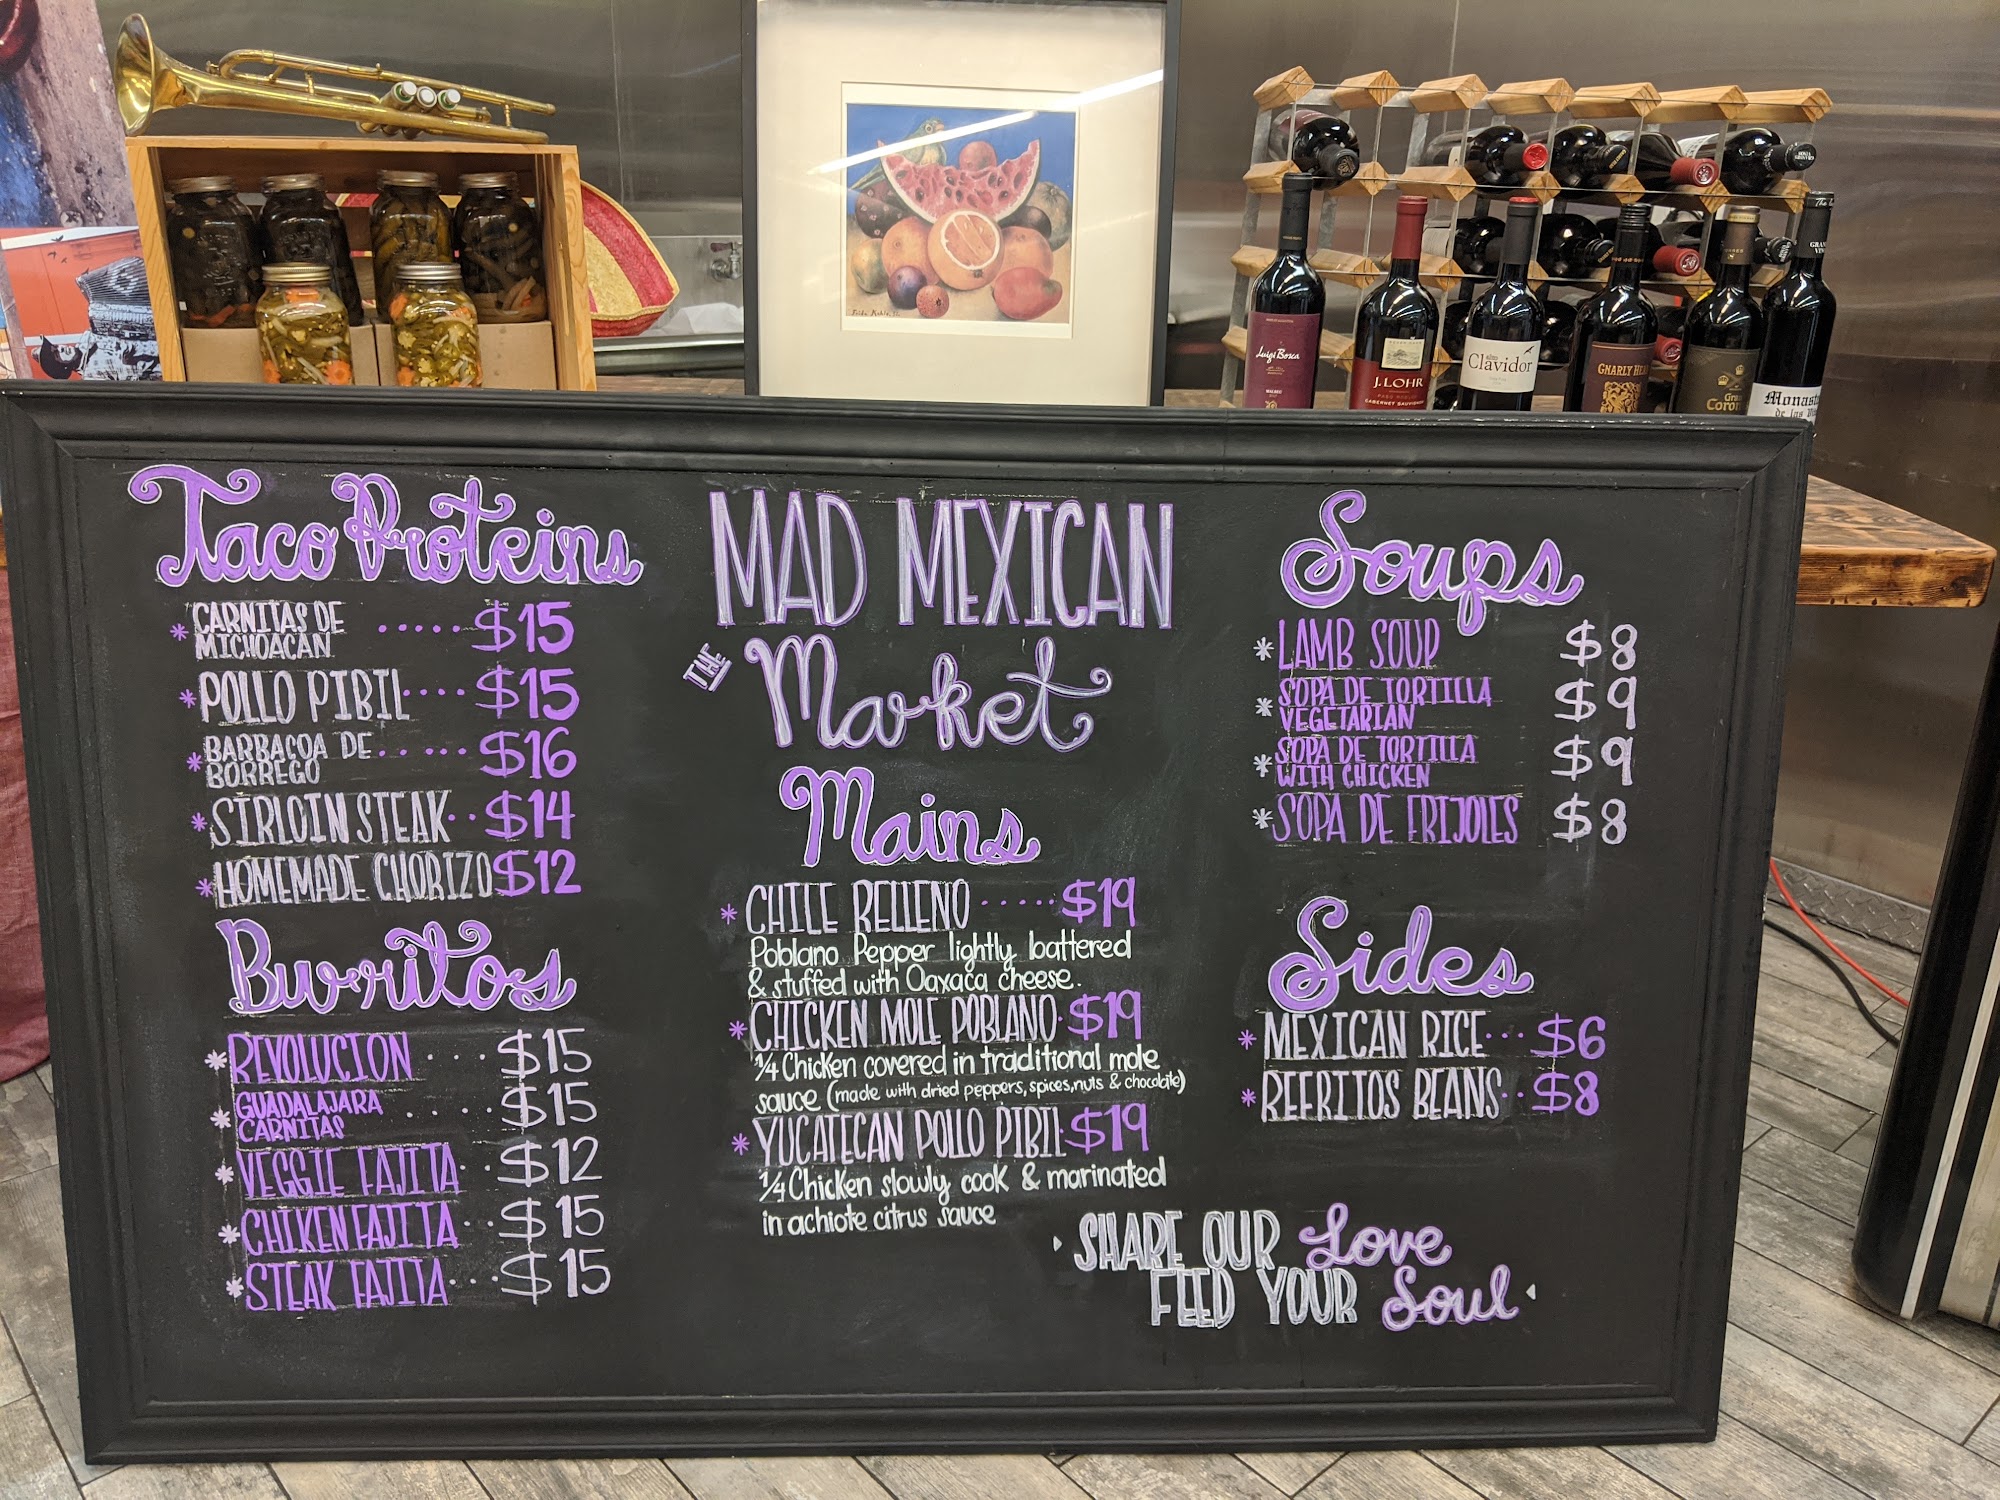 Frida Kahlo, 51.
Luigi Bosca
MALBEC
J. LOHR
PASO ROBLES
CABERNET SAUVIGNON
altos
Clavidor
GNARLY HEAD
Gran
Coron
Monast
de las
Taco Proteins
* CARNITAS DE
MICHOACAN ..... $15
* POLLO PIBIL .... $15
* BARBACOA DE
BORREGO ..... $16
* SIRLOIN STEAK .. $14
* HOMEMADE CHORIZO $12
Burritos
* REVOLUCION .... $15
* GUADALAJARA
CARNITAS ..... $15
* VEGGIE FAJITA .. $12
* CHIKEN FAJITA .. $15
* STEAK FAJITA ... $15
MAD MEXICAN
THE Market
Mains
* CHILE RELLENO ..... $19
Poblano Pepper lightly battered
& stuffed with Oaxaca cheese.
* CHICKEN MOLE POBLANO . $19
1/4 Chicken covered in traditional mole
sauce (made with dried peppers, spices, nuts & chocolate)
* YUCATECAN POLLO PIBIL . $19
1/4 Chicken slowly cook & marinated
in achiote citrus sauce
Soups
* LAMB SOUP $8
* SOPA DE TORTILLA
VEGETARIAN $9
* SOPA DE TORTILLA
WITH CHICKEN $9
* SOPA DE FRIJOLES $8
Sides
* MEXICAN RICE ... $6
* REFRITOS BEANS .. $8
SHARE OUR Love
FEED YOUR Soul